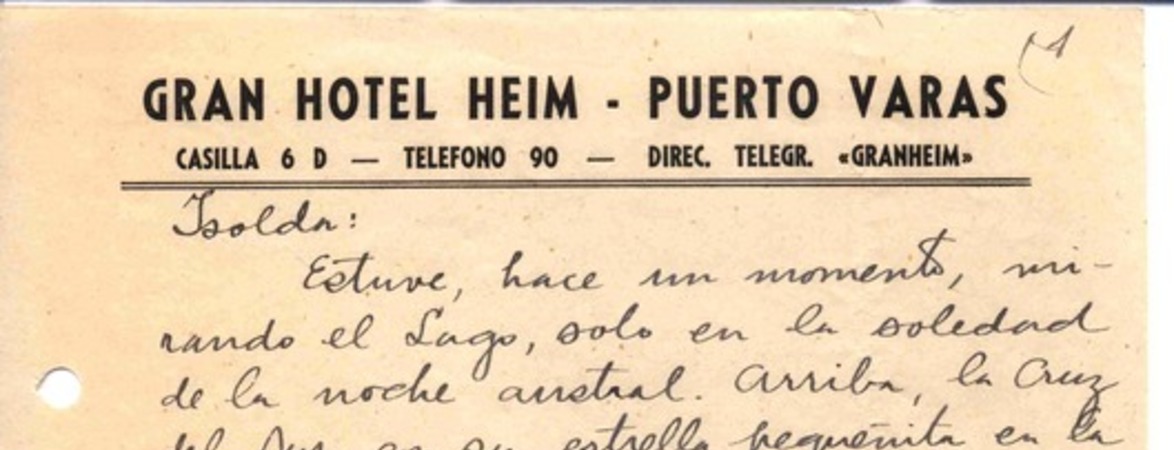 GRAN HOTEL HEIM - PUERTO VARAS
CASILLA 6 D — TELEFONO 90 — DIREC. TELEGR. «GRANHEIM»
Isolda:
Estuve, hace un momento, mi-
rando el Lago, solo en la soledad
de la noche austral. Arriba, la Cruz
del Sur estrella pequeñita en la